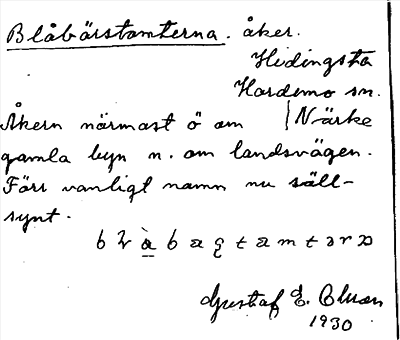 Blåbärstomterna. åker.
Hidingsta
Hardemo sn.
Åkern närmast ö om | Närke
gamla byn n. om landsvägen.
Förr vanligt namn nu säll-
synt.
Gustaf E.
1930